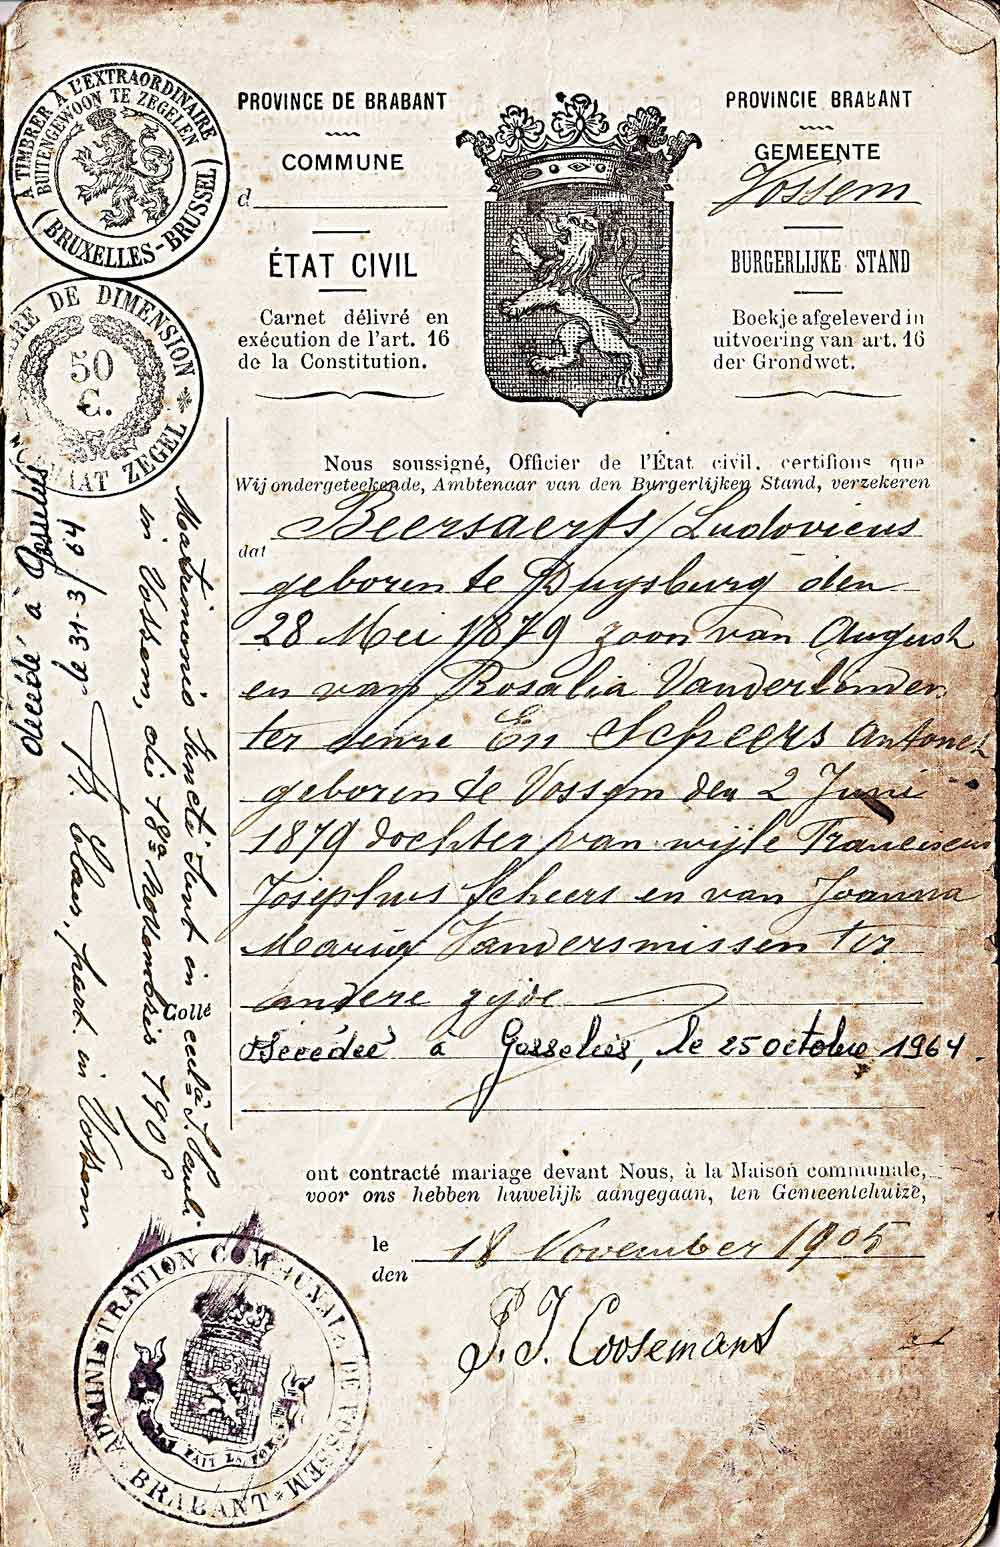 À TIMBRER À L'EXTRAORDINAIRE
BUITENGEWOON TE ZEGELEN
(BRUXELLES-BRUSSEL)
DE DIMENSION
50
C.
ZEGEL
PROVINCE DE BRABANT
COMMUNE
d
ÉTAT CIVIL
Carnet délivré en
exécution de l'art. 16
de la Constitution.
PROVINCIE BRABANT
GEMEENTE
Vossem
BURGERLIJKE STAND
Boekje afgeleverd in
uitvoering van art. 16
der Grondwet.
Nous soussigné, Officier de l'État civil, certifions que
Wij ondergeteekende, Ambtenaar van den Burgerlijken Stand, verzekeren
dat Beersaerts / Ludovicus
geboren te Duysburg den
28 Mei 1879 zoon van August
en van Rosalia Vanderlinden
ter eenre En Scheers Antonet
geboren te Vossem den 2 Juni
1879 dochter van wijle Franciscus
Josephus Scheers en van Joanna
Maria Vandersmissen ter
andere zijde
Décédée à Gosselies, le 25 octobre 1964.
ont contracté mariage devant Nous, à la Maison communale,
voor ons hebben huwelijk aangegaan, ten Gemeentehuize,
le
den 18 November 1905
P. J. Coosemans
décédé à Gosselies
le 31-3/64
Matrimonio juncti sunt in eccl.
in Vossem, die 18a Novembris 1905
Claes, in Vossem
Collé
ADMINISTRATION COMMUNALE DE VOSSEM
BRABANT